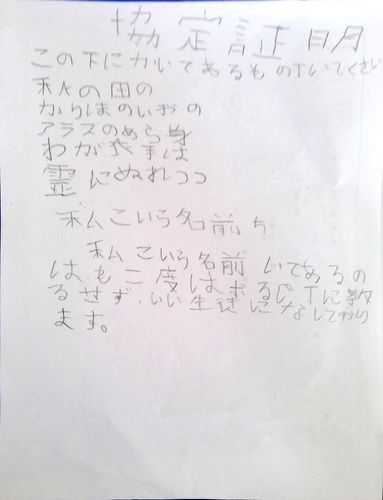 協定証明
この下にかいてあるもの丁いてくさい
秋の田の
かりほのいおの
アラスのめら身
わが衣手は
霊にぬれつつ
私こいら名前ち
私こいら名前いてあるの
はも二度は
るせず、いい生徒に
ます。